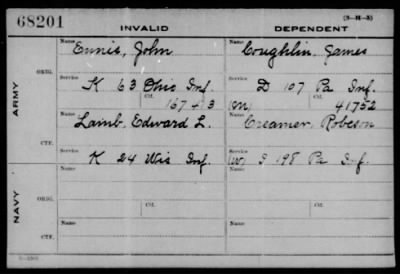 68201
(3-H-3)
INVALID DEPENDENT
ARMY
ORIG.
Name Ennis, John
Name Coughlin James
Service K 63 Ohio Inf.
Service D 107 Pa Inf.
Ctf. 167473
(M) Ctf. 41752
CTF.
Name Lamb, Edward L.
Name Creamer, Robeson
Service K 24 Wis Inf.
Service (W) I 198 Pa Inf.
NAVY
ORIG.
Name
Name
Service
Ctf.
Service
Ctf.
CTF.
Name
Name
Service
Service